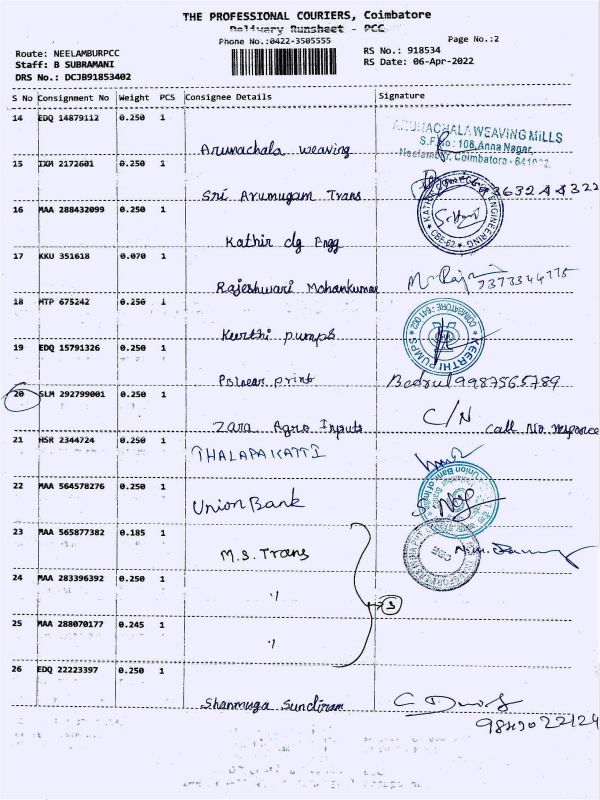 THE PROFESSIONAL COURIERS, Coimbatore
Delivery Runsheet - PCC
Phone No.:0422-3505555
Page No.:2
Route: NEELAMBURPCC
RS No.: 918534
Staff: B SUBRAMANI
RS Date: 06-Apr-2022
DRS No.: DCJB91853402
S No Consignment No Weight PCS Consignee Details Signature
14 EDQ 14879112 0.250 1
Arunachala weaving
ARUNACHALA WEAVING MILLS
S.F.No : 108, Anna Nagar,
Neelambur, Coimbatore - 641
15 IXM 2172601 0.250 1
Sri Arumugam Trans
16 MAA 288432099 0.250 1
Kathir clg Engg
KATHIR ENGINEERING
CBE-62
17 KKU 351618 0.070 1
Rajeshwari Mohankumar
18 MTP 675242 0.250 1
Keerthi pumps
KEERTHI PUMPS
COIMBATORE - 641 062
19 EDQ 15791326 0.250 1
print
9987565789
20 SLM 292799001 0.250 1
Zara Agro Inputs
C/N
call No. responce
21 HSR 2344724 0.250 1
THALAPAKATTI
22 MAA 564578276 0.250 1
Union Bank
Union Bank of India
23 MAA 565877382 0.185 1
M.S. Trans
24 MAA 283396392 0.250 1
"
3
25 MAA 288070177 0.245 1
"
26 EDQ 22223397 0.250 1
Shanmuga Sundiram